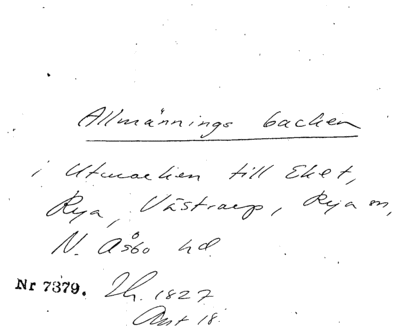 Allmännings backen
i Utmarken till Eket,
Rya, Västrarp, Rya sn,
N. Åsbo hd.
Nr 7379. Th. 1827
Ant 18.